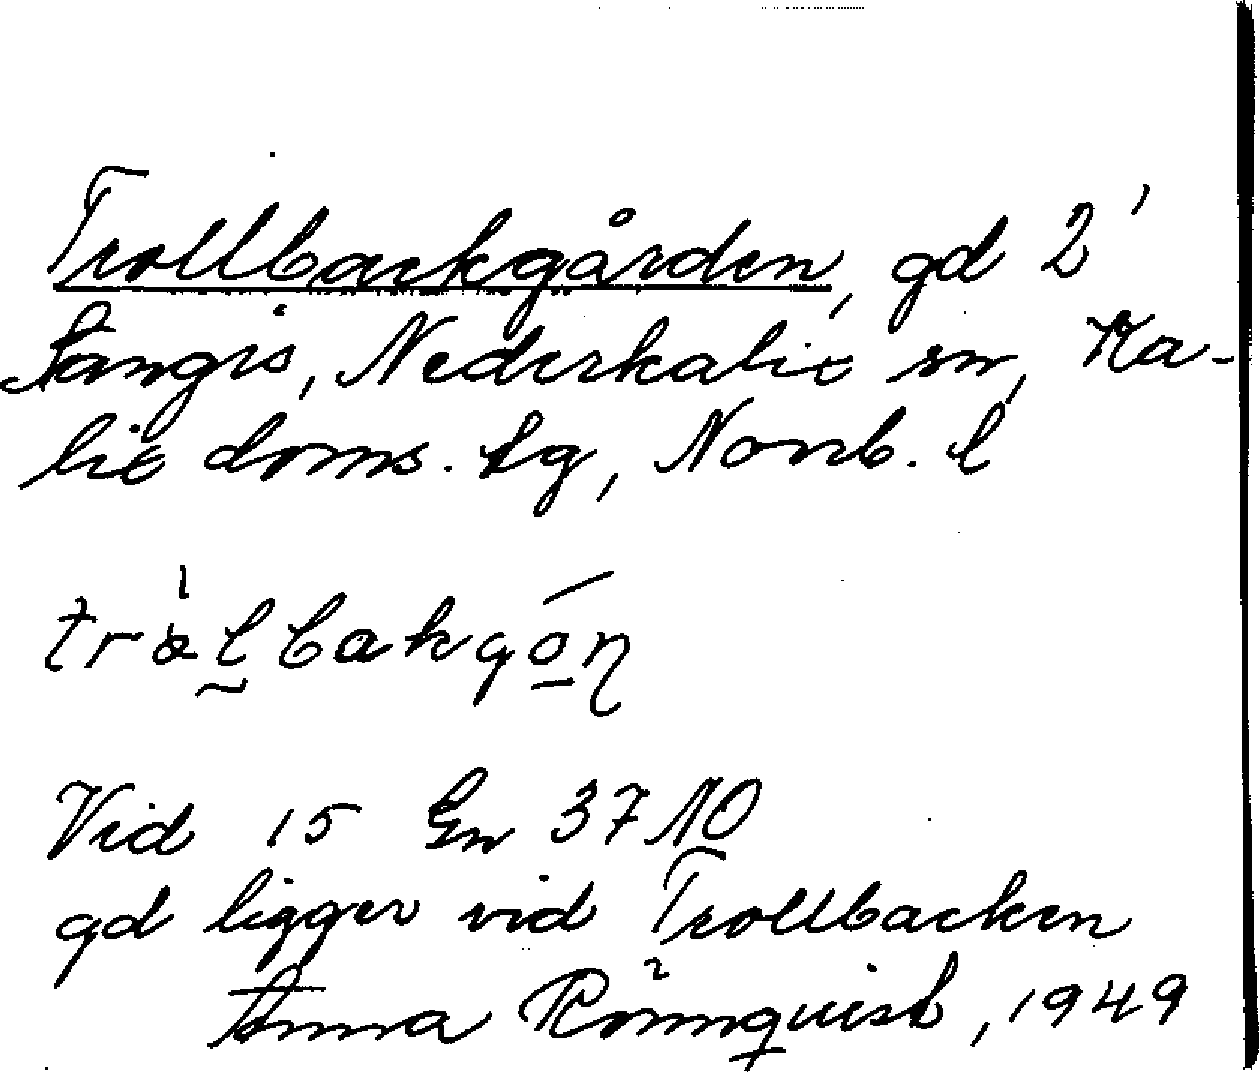 Trollbackgården, gd 2 i
Sangis, Nederkalix sn, Ka-
lix doms. tg, Norrb. l
Vid 15 En 37 NO
gd ligger vid Trollbacken
Anna Rönnquist, 1949